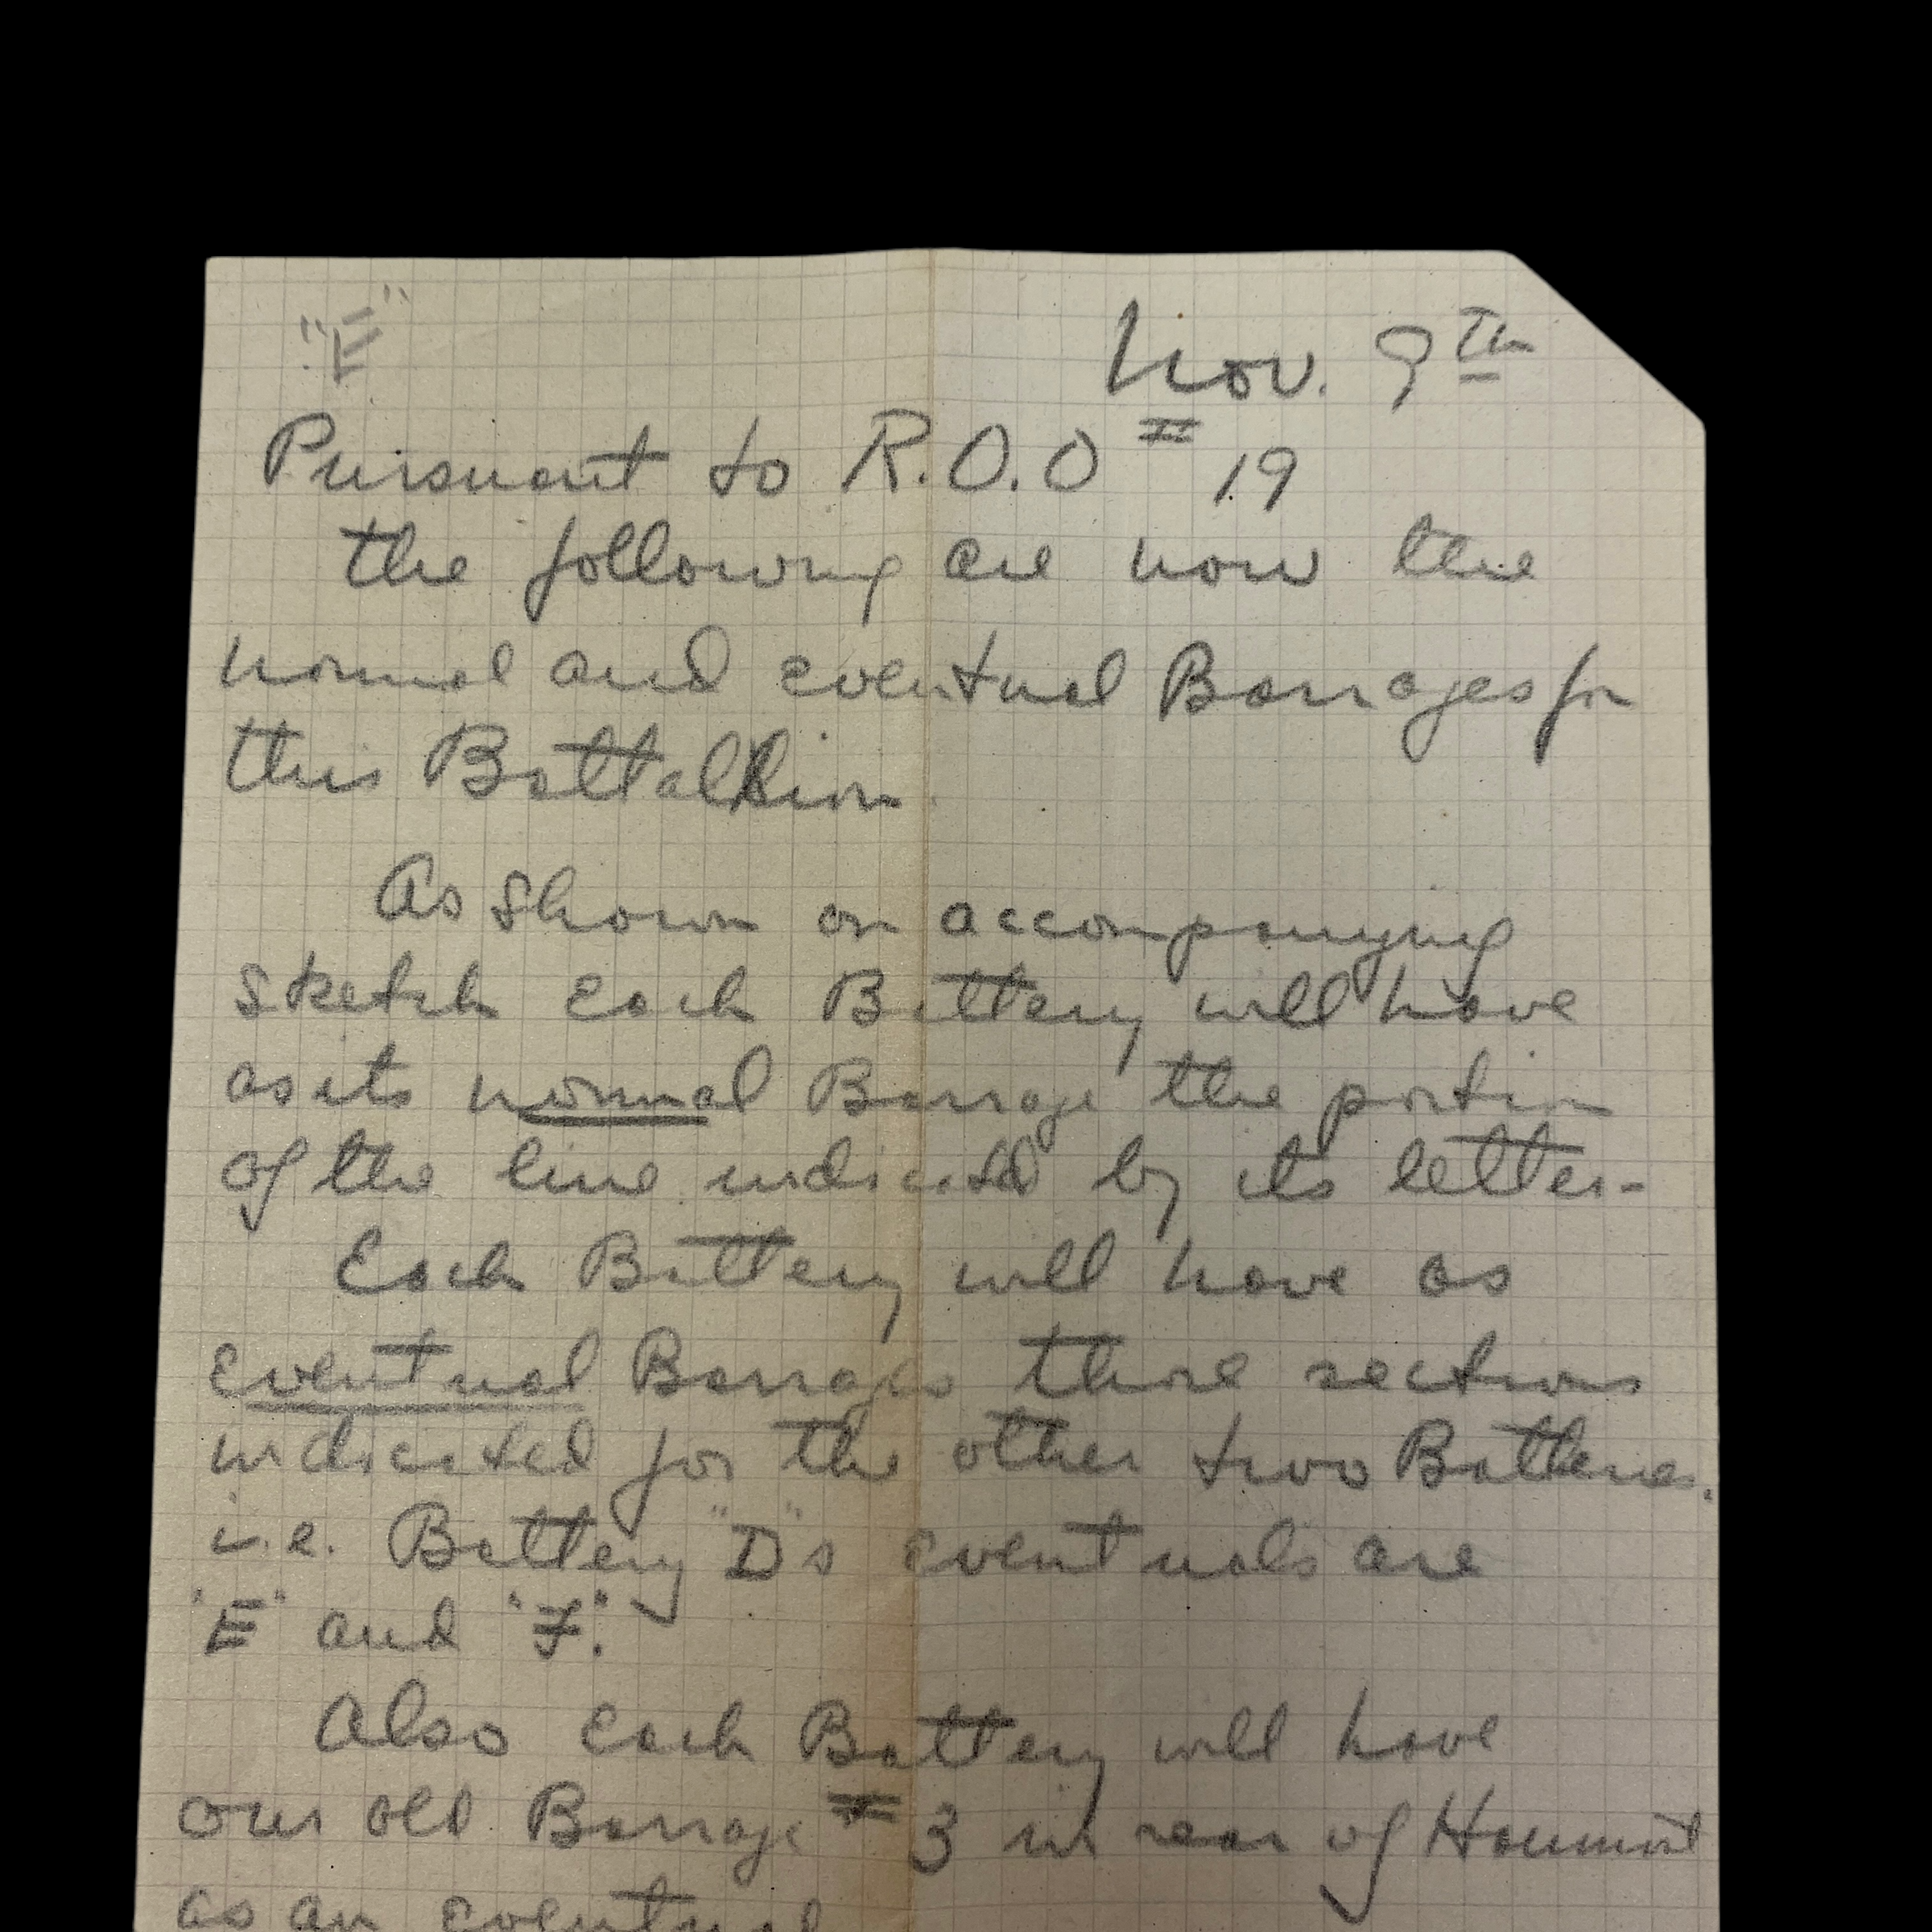 "E"
Nov. 9th
Pursuant to R.O.O # 19
the following are now the
normal and eventual Barrages for
this Battallion.
As Shown on accompanying
Sketch each Battery will have
as its normal Barrage the portion
of the line indicated by its letter-
Each Battery will have as
Eventual Barrages those sections
indicated for the other two Batteries.
i.e. Battery "D"s eventuals are
"E" and "F".
Also each Battery will have
our old Barrage # 3 in rear of Haumont
as an eventual